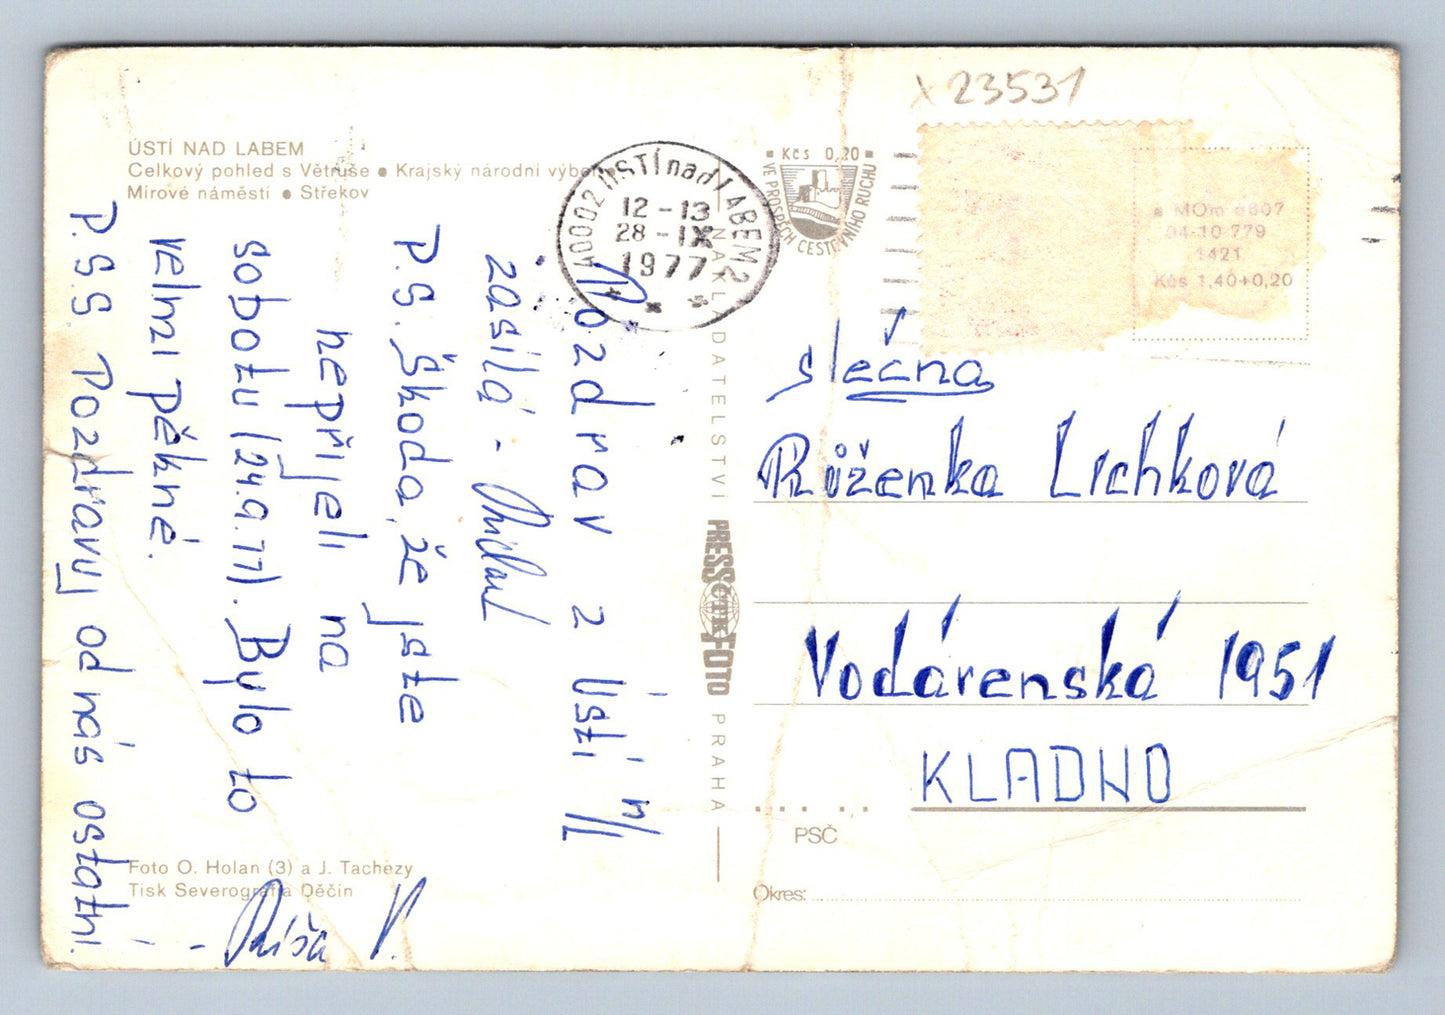 x 23531
ÚSTÍ NAD LABEM
Celkový pohled s Větruše ● Krajský národní výbor
Mírové náměstí ● Střekov
40002 ÚSTÍ nad LABEM 2
12-13
28-IX
1977
Kčs 0,20
VE PROSPĚCH CESTOVNÍHO RUCHU
a MOm 0607
04-10 779
1421
Kčs 1,40+0,20
Pozdrav z Ústí n/L
zasílá -
P.S. Škoda, že jste
nepřijeli na
sobotu (24.9.77). Bylo to
velmi pěkné.
P.S.S Pozdravuj od nás ostatní.
- Ríša V.
NAKLADATELSTVÍ PRESSFOTO PRAHA
ČTK
slečna
Růženka Lichková
Vodárenská 1951
KLADNO
PSČ
Okres:
Foto O. Holan (3) a J. Tachezy
Tisk Severografia Děčín